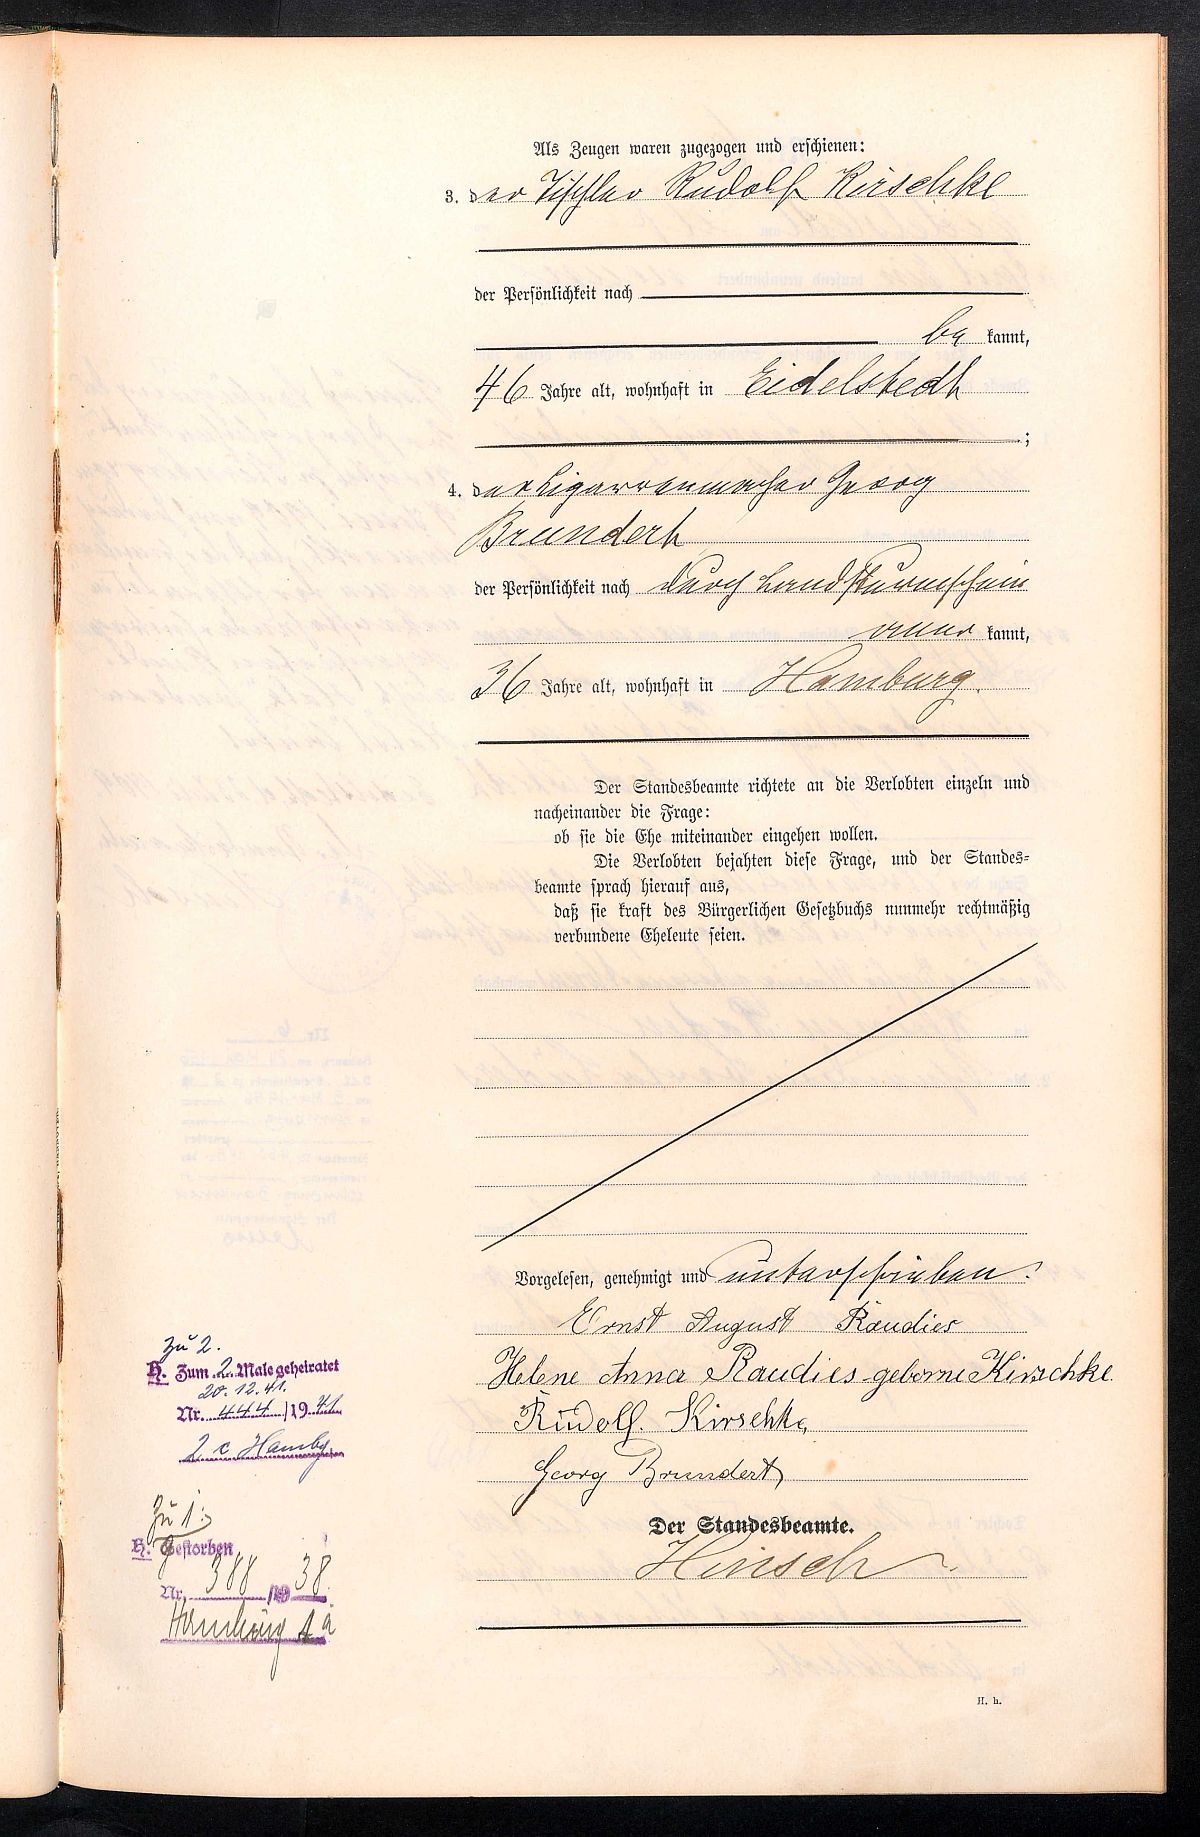 Als Zeugen waren zugezogen und erschienen:
3. der Tischler Rudolf Kirschke
der Persönlichkeit nach
be kannt,
46 Jahre alt, wohnhaft in Eidelstedt
;
4. der Zigarrenmacher Georg
Brundert
der Persönlichkeit nach durch Landsturmschein
aner kannt,
36 Jahre alt, wohnhaft in Hamburg.
Der Standesbeamte richtete an die Verlobten einzeln und
nacheinander die Frage:
ob sie die Ehe miteinander eingehen wollen.
Die Verlobten bejahten diese Frage, und der Standes-
beamte sprach hierauf aus,
daß sie kraft des Bürgerlichen Gesetzbuchs nunmehr rechtmäßig
verbundene Eheleute seien.
Vorgelesen, genehmigt und unterschrieben:
Ernst August Raudies
Helene Anna Raudies geborne Kirschke.
Rudolf Kirschke
Georg Brundert
Der Standesbeamte.
Hinsch
H. h.
Zu 2.
H. Zum 2. Male geheiratet
20.12.41.
Nr. 444/1941
2c Hambg.
Zu 1:
H. Gestorben
Nr. 388/1938.
Hamburg 1a